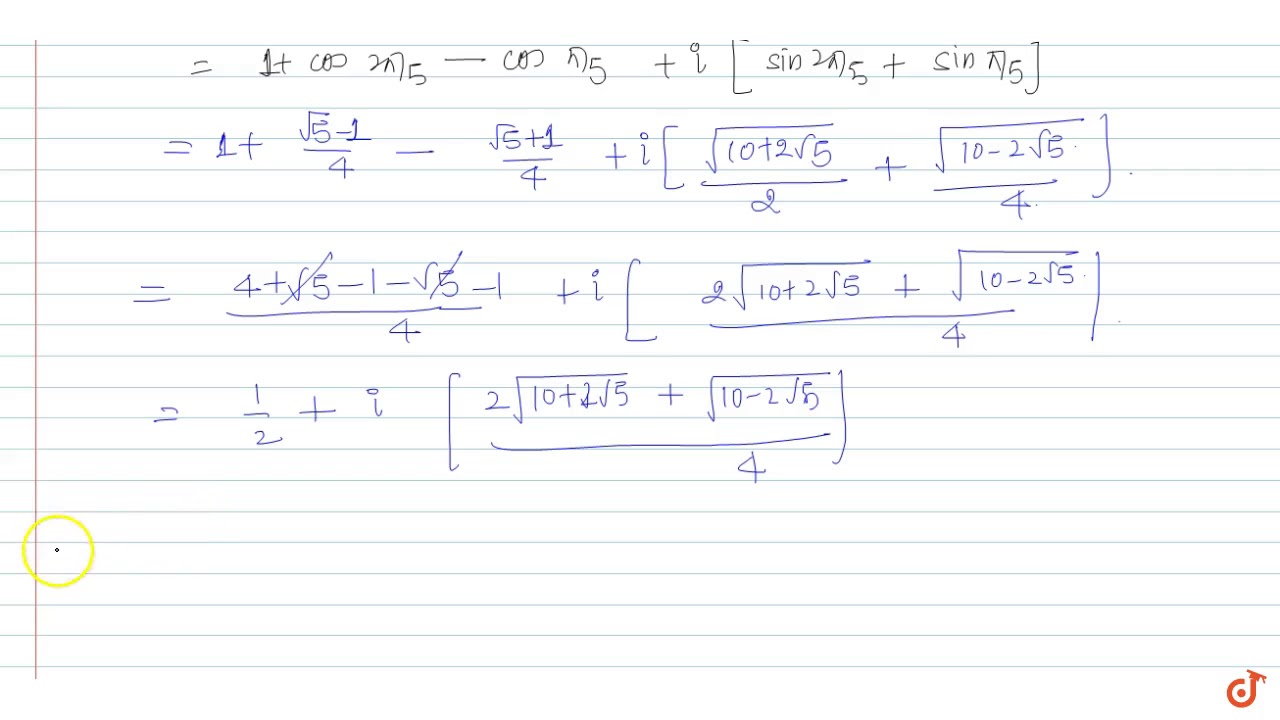 = 1+ cos 2π/5 — cos π/5 + i [ sin 2π/5 + sin π/5 ]
= 1+ (√5-1)/4 — (√5+1)/4 + i [ √(10+2√5)/2 + √(10-2√5)/4 ] .
= (4+√5-1-√5-1)/4 + i [ (2√(10+2√5) + √(10-2√5))/4 ] .
= 1/2 + i [ (2√(10+2√5) + √(10-2√5))/4 ]